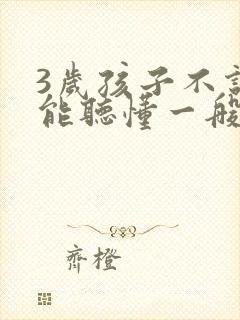 3歲孩子不
能聽懂一般
齊橙